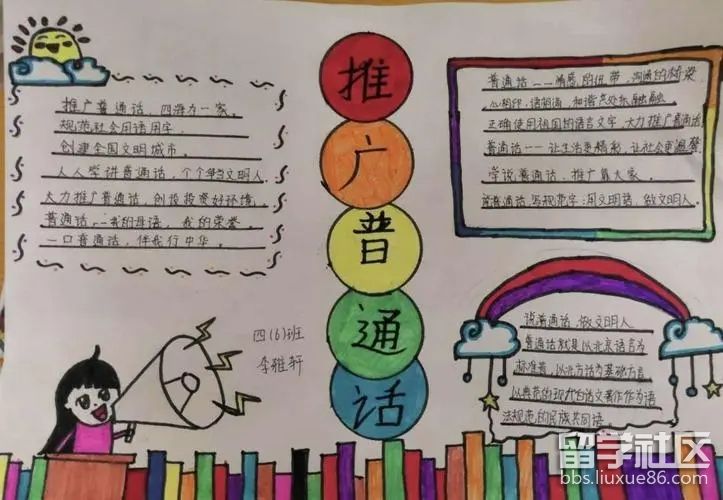 推广普通话
推广普通话，四海为一家。
规范社会用语用字，
创建全国文明城市。
人人学讲普通话，个个争当文明人
大力推广普通话，创设投资好环境，
普通话——我的母语，我的荣誉。
一口普通话，伴我行中华。
四(6)班
李雅轩
普通话——情感的纽带，沟通的桥梁
心相印，语相通，和谐共处乐融融
正确使用祖国的语言文字 大力推广普通话
普通话——让生活更精彩，让社会更温馨
学说普通话，推广靠大家。
普通话 写规范字：用文明语，做文明人。
说普通话，做文明人
普通话就是以北京语言为
标准音，以北方话为基础方言
以典范的现代白话文著作作为语
法规范的民族共同语。
留学社区
bbs.liuxue86.com